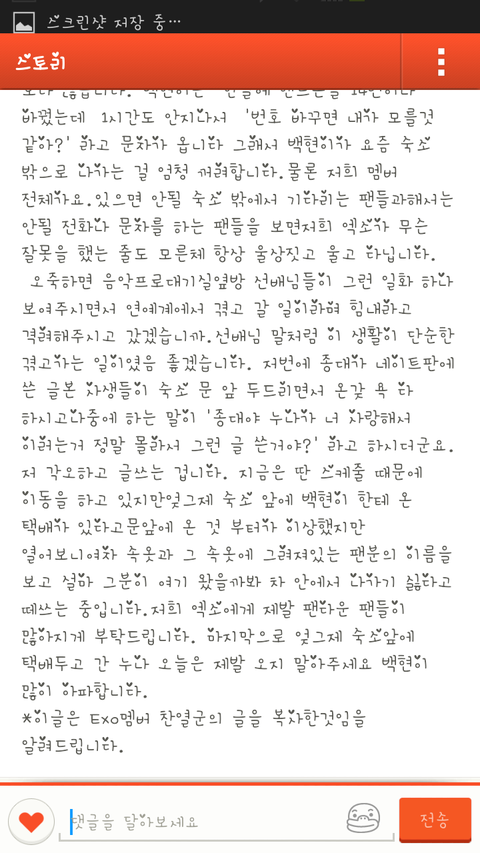 스크린샷 저장 중…
스토리
바꿨는데 1시간도 안지나서 '번호 바꾸면 내가 모를것
같아?' 라고 문자가 옵니다 그래서 백현이가 요즘 숙소
밖으로 나가는 걸 엄청 꺼려합니다.물론 저희 멤버
전체가요.있으면 안될 숙소 밖에서 기다리는 팬들과해서는
안될 전화나 문자를 하는 팬들을 보면저희 엑소가 무슨
잘못을 했는 줄도 모른체 항상 울상짓고 울고 다닙니다.
오죽하면 음악프로대기실옆방 선배님들이 그런 일화 하나
보여주시면서 연예계에서 겪고 갈 일이라며 힘내라고
격려해주시고 갔겠습니까.선배님 말처럼 이 생활이 단순한
겪고가는 일이였음 좋겠습니다. 저번에 종대가 네이트판에
쓴 글본 사생들이 숙소 문 앞 두드리면서 온갖 욕 다
하시고나중에 하는 말이 '종대야 누나가 너 사랑해서
이러는거 정말 몰라서 그런 글 쓴거야?' 라고 하시더군요.
저 각오하고 글쓰는 겁니다. 지금은 딴 스케줄 때문에
이동을 하고 있지만엊그제 숙소 앞에 백현이 한테 온
택배가 있다고문앞에 온 것 부터가 이상했지만
열어보니여자 속옷과 그 속옷에 그려져있는 팬분의 이름을
보고 설마 그분이 여기 왔을까봐 차 안에서 나가기 싫다고
떼쓰는 중입니다.저희 엑소에게 제발 팬다운 팬들이
많아지게 부탁드립니다. 마지막으로 엊그제 숙소앞에
택배두고 간 누나 오늘은 제발 오지 말아주세요 백현이
많이 아파합니다.
*이글은 Exo멤버 찬열군의 글을 복사한것임을
알려드립니다.
댓글을 달아보세요
전송